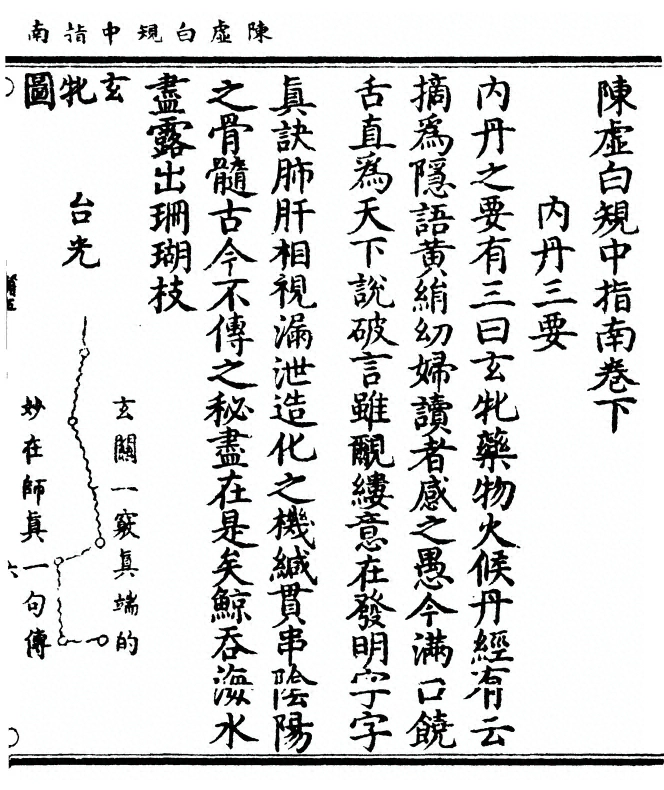 陳虛白規中指南
陳虛白規中指南卷下
內丹三要
內丹之要有三曰玄牝藥物火候丹經有云
摘為隱語黃絹幼婦讀者感之愚今滿口饒
舌直為天下說破言雖覼縷意在發明字字
真訣肺肝相視漏泄造化之機緘貫串陰陽
之骨髓古今不傳之秘盡在是矣鯨吞海水
盡露出珊瑚枝
玄牝圖
台光
玄關一竅真端的
妙在師真一句傳
六